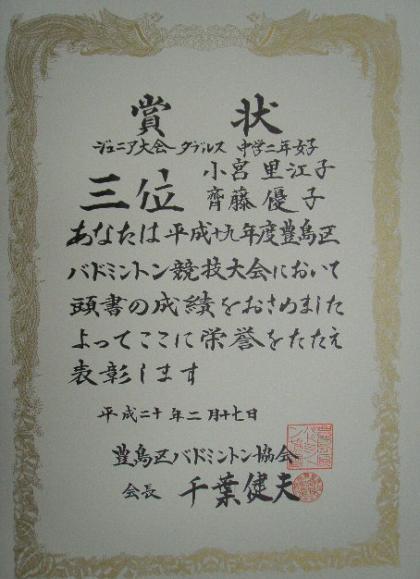 賞状
ジュニア大会 ダブルス 中学二年女子
三位
小宮里江子
齊藤優子
あなたは平成十九年度豊島区
バドミントン競技大会において
頭書の成績をおさめました
よってここに栄誉をたたえ
表彰します
平成二十年二月十七日
豊島区バドミントン協会
会長 千葉健夫